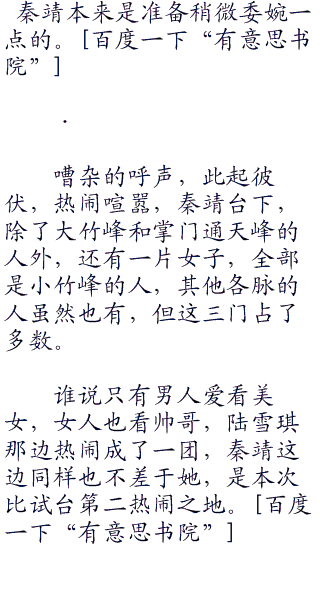 秦靖本来是准备稍微委婉一
点的。[百度一下“有意思书
院”]
.
嘈杂的呼声，此起彼
伏，热闹喧嚣，秦靖台下，
除了大竹峰和掌门通天峰的
人外，还有一片女子，全部
是小竹峰的人，其他各脉的
人虽然也有，但这三门占了
多数。
谁说只有男人爱看美
女，女人也看帅哥，陆雪琪
那边热闹成了一团，秦靖这
边同样也不差于她，是本次
比试台第二热闹之地。[百度
一下“有意思书院”]